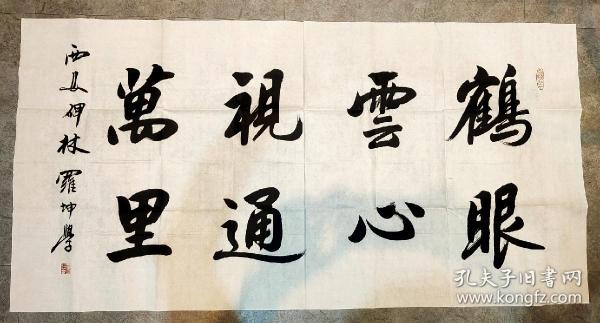 鶴眼
雲心
視通
萬里
西安碑林 羅坤學
孔夫子旧书网
www.kongfz.com